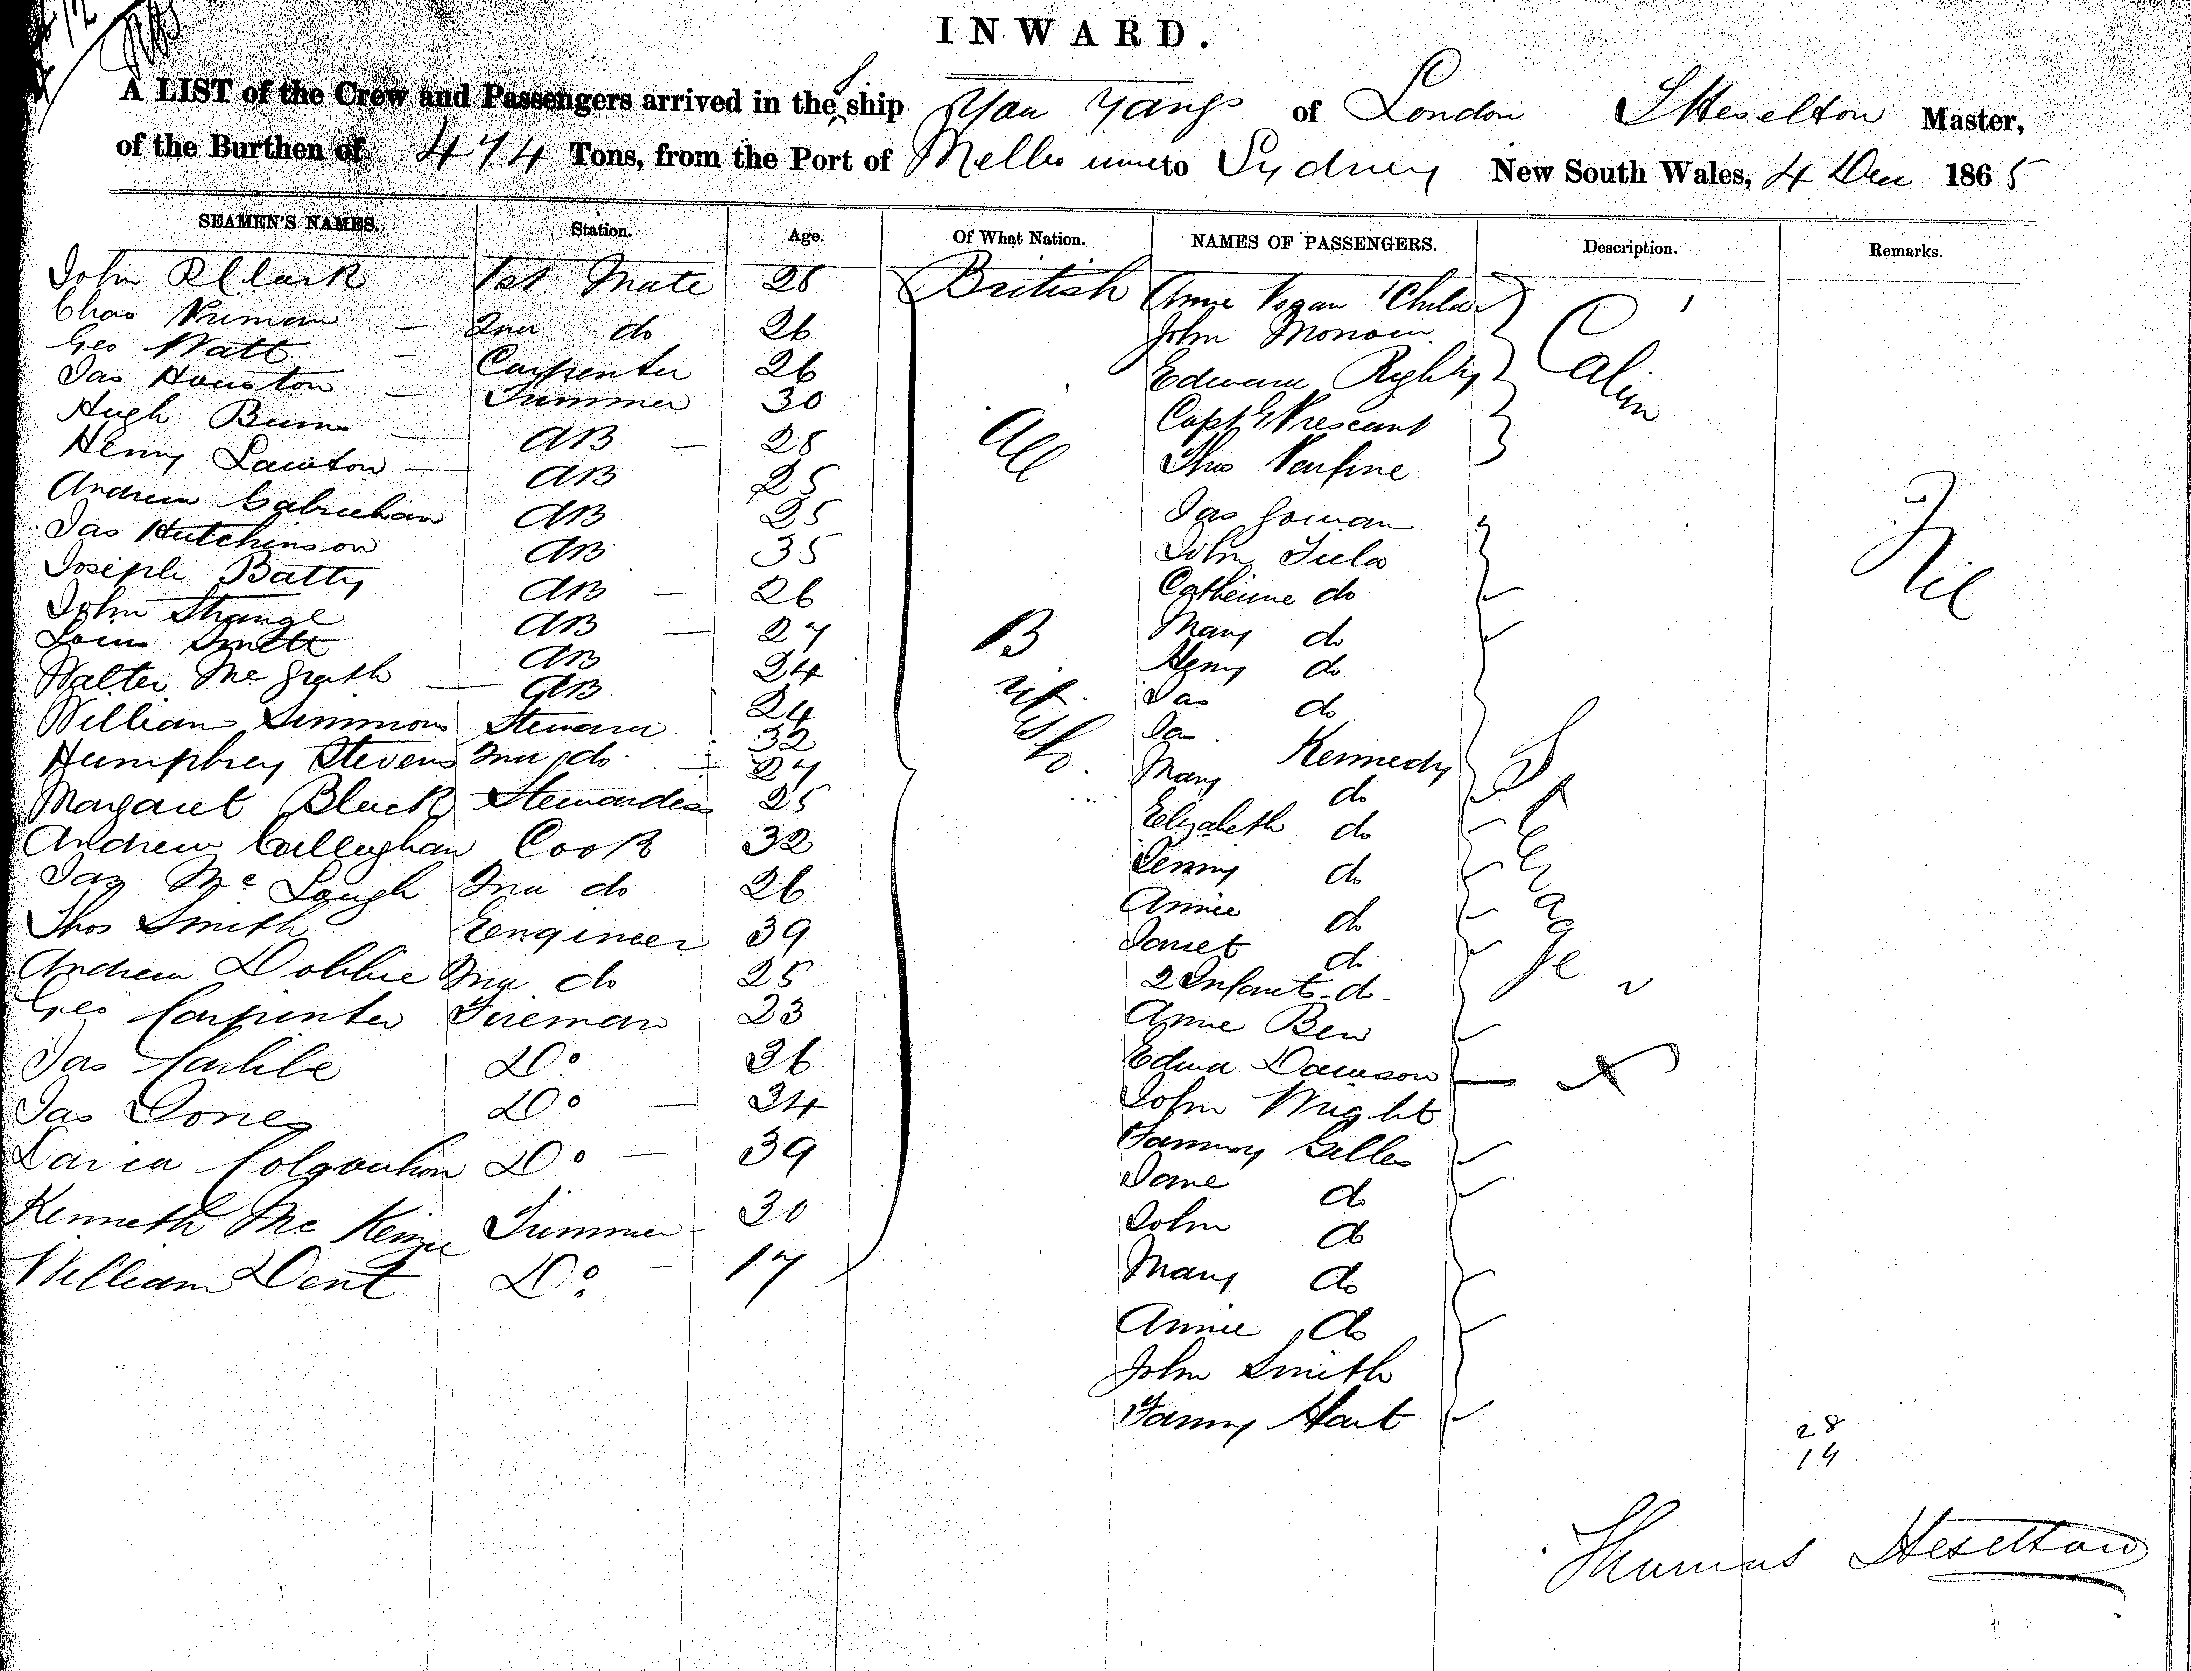 INWARD.
A LIST of the Crew and Passengers arrived in the S ship You Yangs of London T Heselton Master,
of the Burthen of 474 Tons, from the Port of Melbourne to Sydney New South Wales, 4 Dec 1865
SEAMEN'S NAMES. Station. Age. Of What Nation. NAMES OF PASSENGERS. Description. Remarks.
John R Clark 1st Mate 28 British Annie 1 Child
Chas 2nd do 26 John
Geo Watt Carpenter 26 Edward Cabin
Jas Houston Trimmer 30 Capt
Hugh Burns AB 28 All Thos
Henry Lawton AB 25
Andrew AB 25 Jas
Jas Hutchinson AB 35 John Nil
Joseph Batty AB 26 Catherine do
John Strange AB 27 British Mary do
Louis Smith AB 24 Henry do
Walter McGrath AB 24 Jas do
William Simmons Steward 32 Jas Kennedy Steerage
Humphrey Stevens 2nd do 27 Mary do
Margaret Black Stewardess 25 Elizabeth do
Andrew Callaghan Cook 32 Jenny do
Jas Mc Laugh 2nd do 26 Annie do
Thos Smith Eengineer 39 Janet do
Andrew Dobbie 2nd do 25 2 Infants do
Geo Carpinter Fireman 23 Annie Bew
Jas Carlile Do 36 Edwd Dawson
Jas Jones Do 34 John Wright
David Colquhon Do 39 Fanny Gilles
Kenneth Mc Kenzie Trimmer 30 Jane do
William Dent Do 17 John do
Mary do
Annie do
John Smith
Fanny Hart
28
14
Thomas Heselton